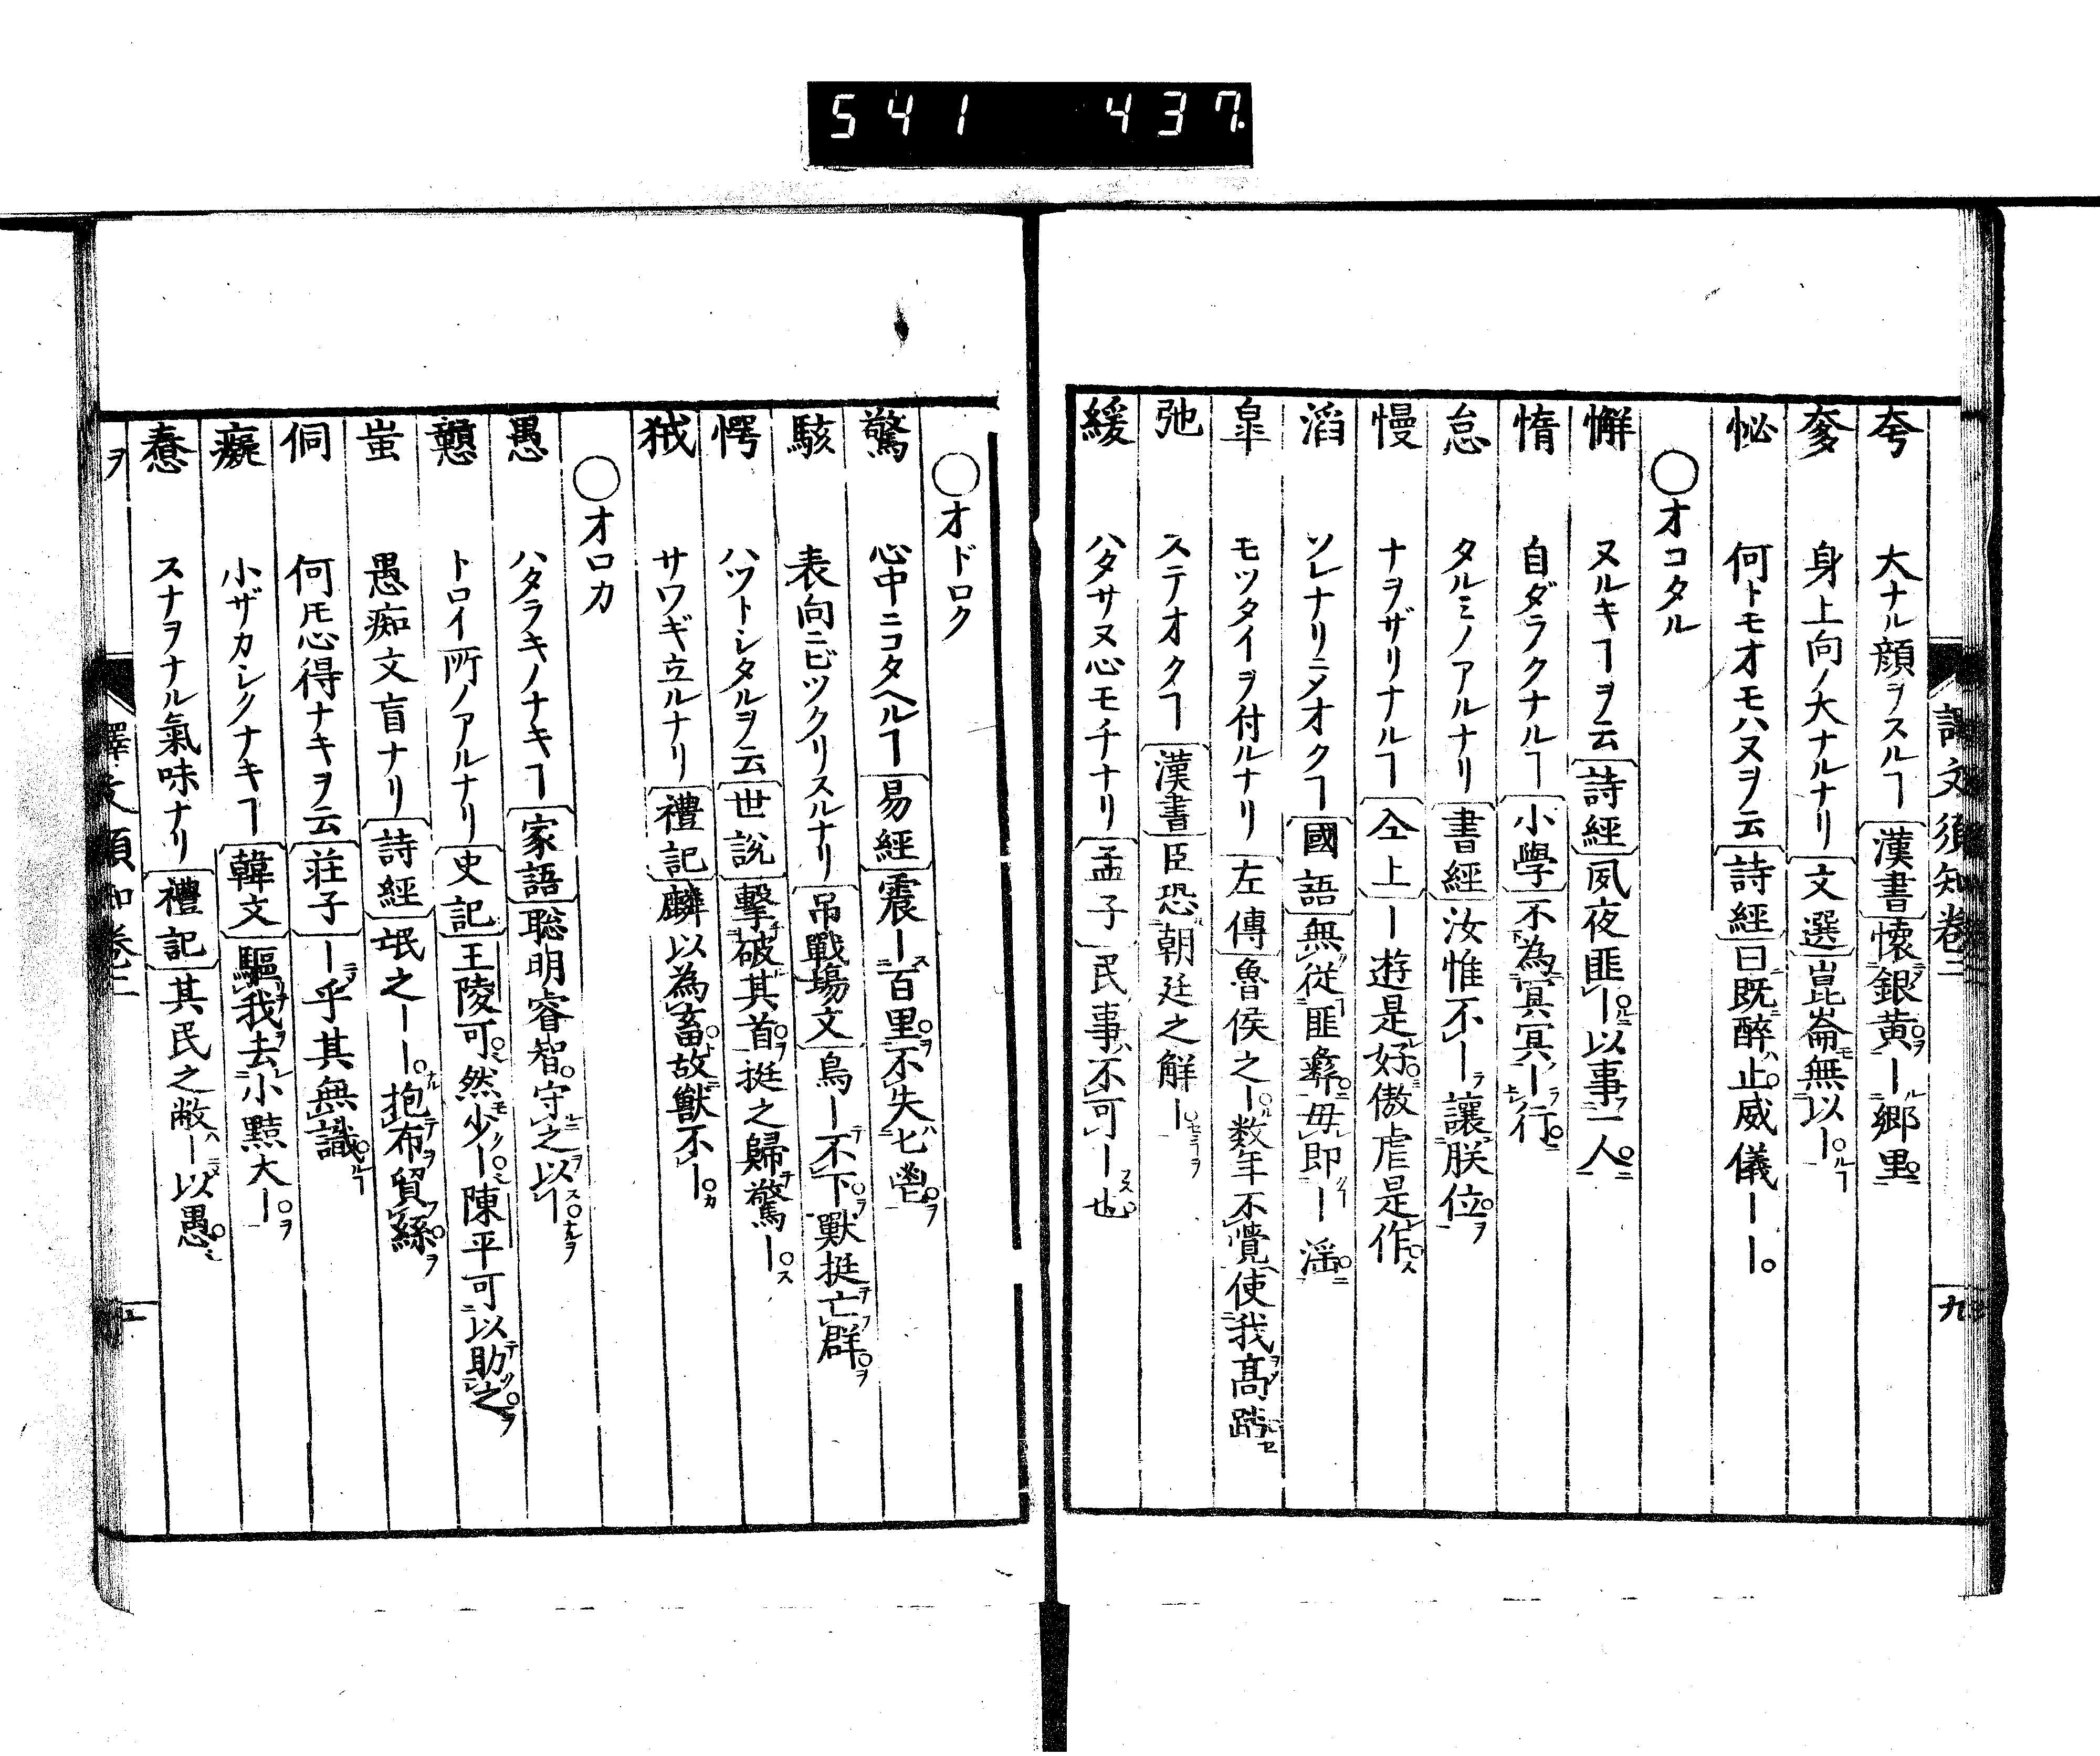 541 437
譯文須知卷二
九
夸 大ナル顔ヲスルヿ 漢書 懷銀黄ー郷里
奓 身上向ノ大ナルナリ 文選 崑崙無以ー
怭 何トモオモハヌヲ云 詩經 曰既醉止威儀ーー
○オコタル
懈 ヌルキヿヲ云 詩經 夙夜匪ー以事一人
惰 自ダラクナルヿ 小學 不為冥冥ー行
怠 タルミノアルナリ 書經 汝惟不ー讓朕位
慢 ナヲザリナルヿ 仝上 ー遊是好傲虐是作
滔 ソレナリニメオクヿ 國語 無從匪彝毋即ー淫
皐 モツタイヲ付ルナリ 左傳 魯侯之ー数年不覺使我髙蹈
弛 ステオクヿ 漢書 臣恐朝廷之解ー
緩 ハタサヌ心モチナリ 孟子 民事不可ー也
○オドロク
驚 心中ニコタヘルヿ 易經 震ー百里不失匕鬯
駭 表向ニビツクリスルナリ 吊戰場文 鳥ー不下獸挺亡群
愕 ハツトシタルヲ云 世説 擊破其首挺之歸驚ー
狘 サワギ立ルナリ 禮記 麟以為畜故獸不ー
○オロカ
愚 ハタラキノナキヿ 家語 聡明睿智守之以ー
戇 トロイ所ノアルナリ 史記 王陵可然少ー陳平可以助之
蚩 愚痴文盲ナリ 詩經 氓之ーー抱布貿絲
侗 何𪜈心得ナキヲ云 莊子 ー乎其無識
癡 小ザカシクナキヿ 韓文 驅我去小黠大ー
惷 スナヲナル氣味ナリ 禮記 其民之敝ー以愚
ヲ
譯文須知卷二